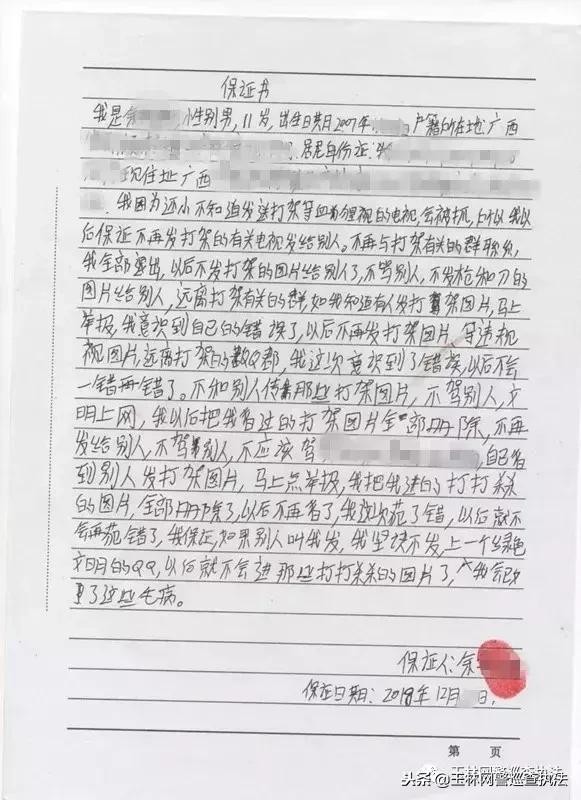 保证书
我是余 小性别男,11岁,出生日期日2007年 户籍所在地:广西
居民身份证:
现住址广西
我因为还小不知道发送打架等血腥视的电视,会被抓,所以我以
后保证不再发打架的有关电视发给别人。不再与打架有关的群联系,
我全部退出,以后不发打架的图片给别人了,不骂别人,不发枪和刀的
图片给别人,远离打架有关的群,如我知道有人发打架图片,马上
举报,我意识到自己的错误了,以后不再发打架图片,等违规
视图片,远离打架的QQ群,我这次意识到了错误,以后不会
一错再错了。不和别人传那些打架图片,不驾别人,文
明上网,我以后把我看过的打架图片全部册除,不再
发给别人,不驾别人,不应该驾 ,自己看
到别人发打架图片,马上点举报,我把我进的打打杀杀
的图片,全部册除了,以后不再看了,我这次范了错,以后就不
会再范错了,我保证,如果别人叫我发,我坚决不发,上一个绿色
文明的QQ,以后就不会进那些打打杀杀的图片了,我会改
了这些毛病。
保证人:余
保证日期:2018年12月 日.
第 页
玉林网警巡查执法
头条@玉林网警巡查执法